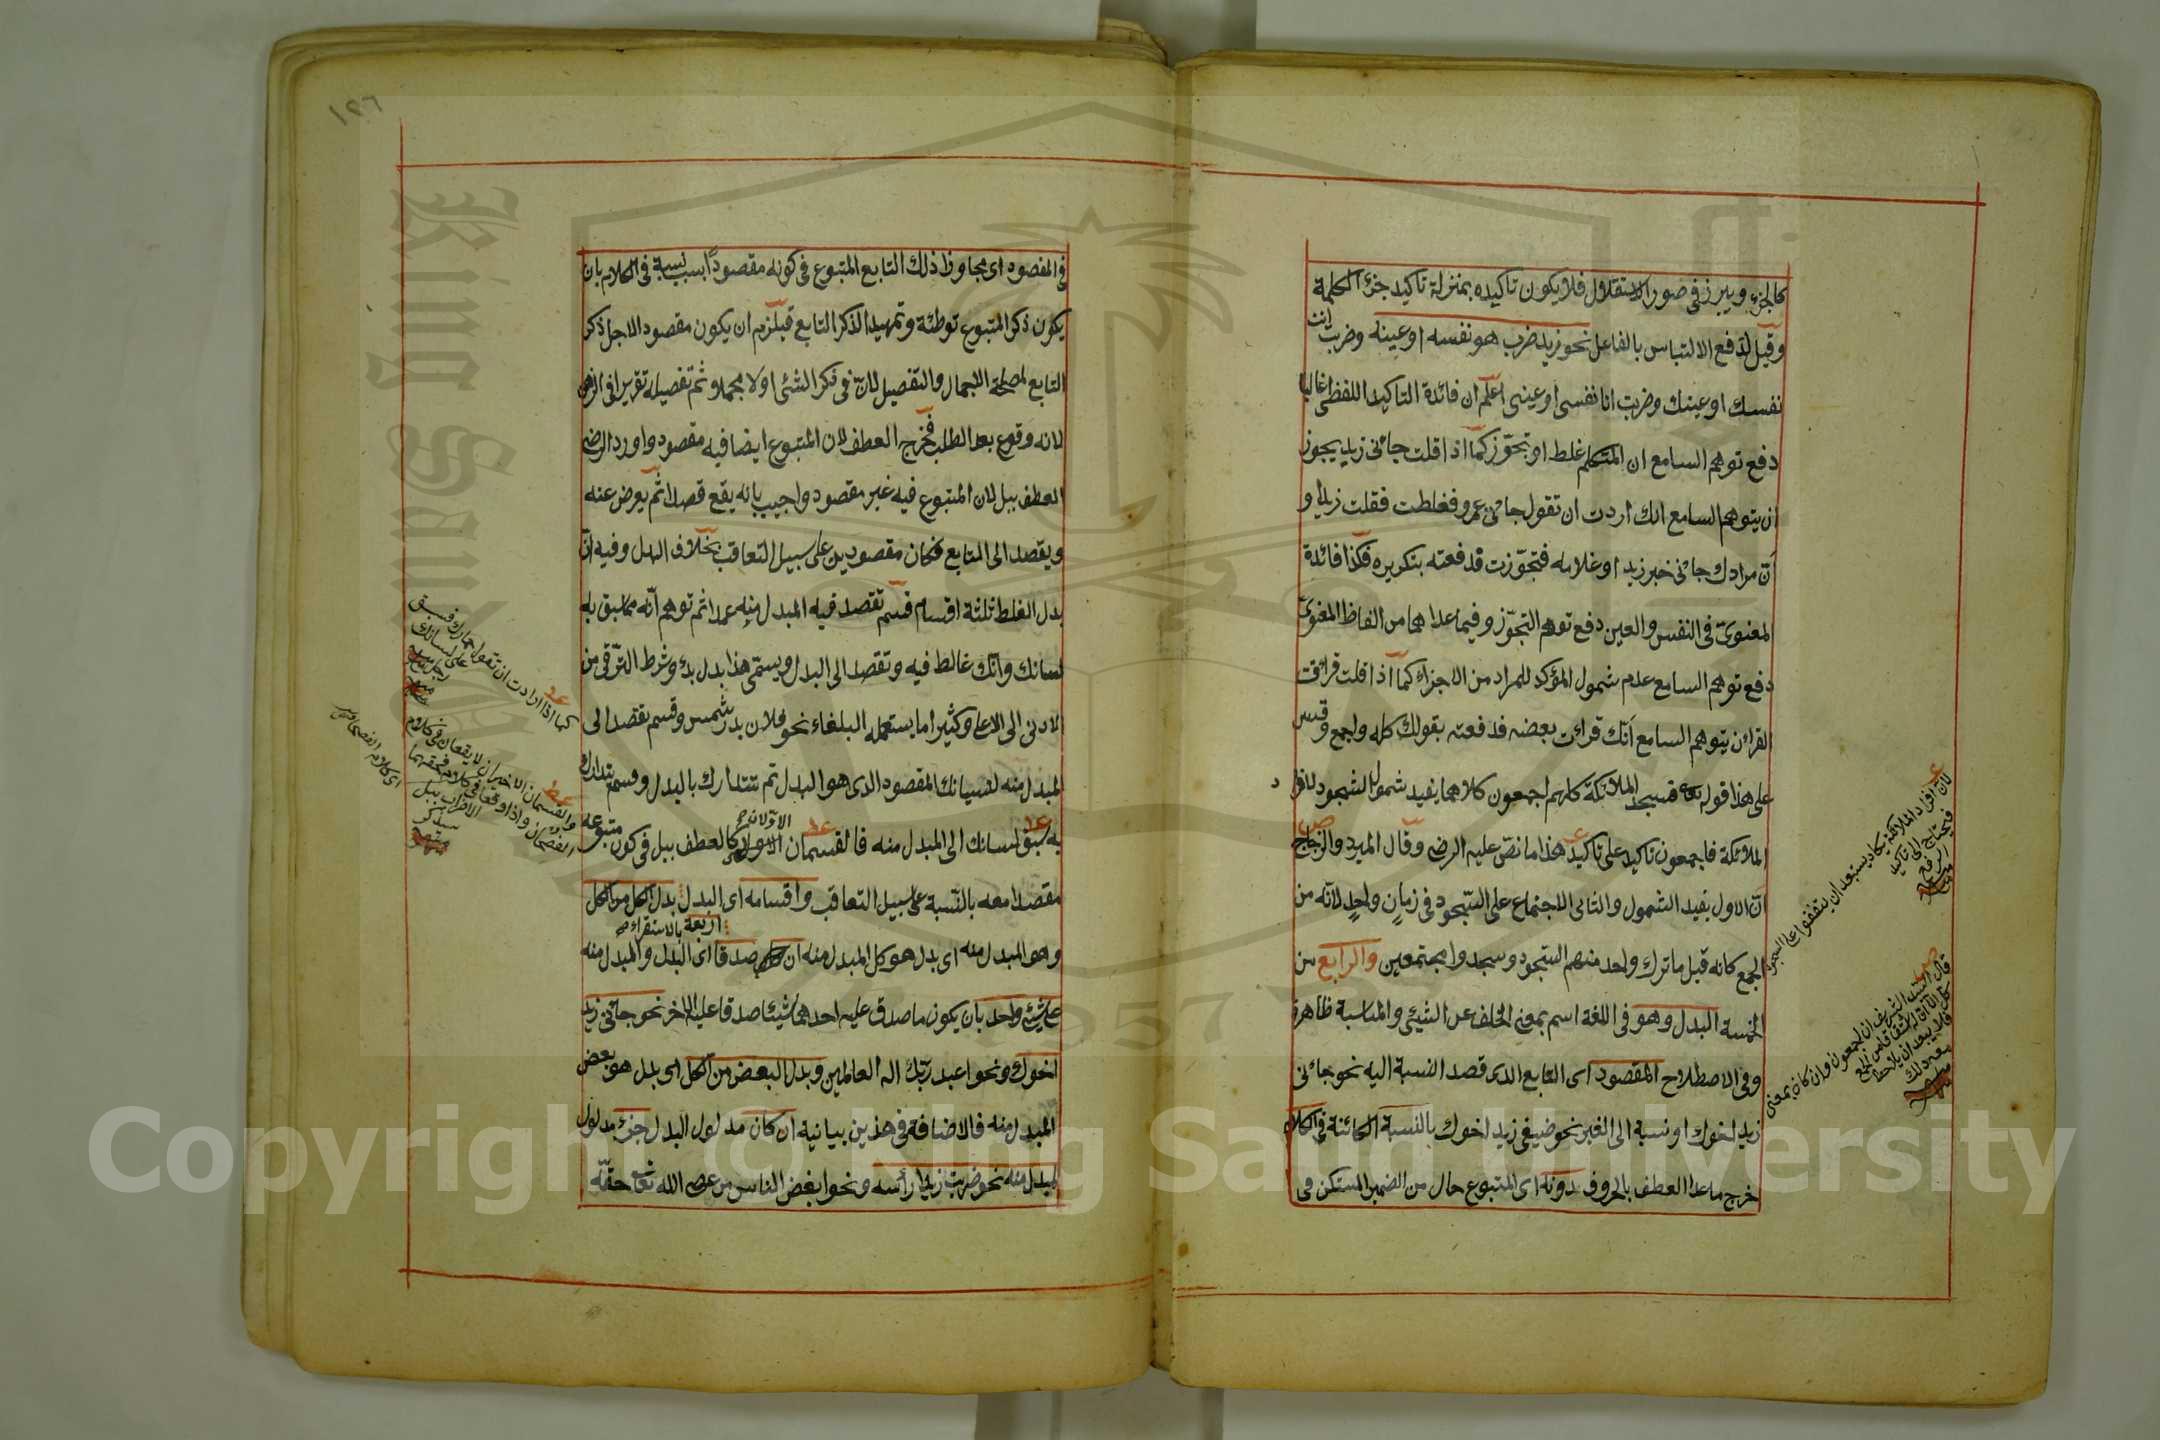 كالجزء ويبرز في صور الاستقلال فلا يكون تاكيده بمنزلة تاكيد جزء الكلمة
وقيل لدفع الالتباس بالفاعل نحو زيد ضرب هو نفسه او عينه وضربت انت
نفسك او عينك وضربت انا نفسى او عينى اعلم ان فائدة التاكيد اللفظى غالبا
دفع توهم السامع ان المتكلم غلط او تجوّز كما اذا قلت جائنى زيد يجوز
ان يتوهم السامع انك اردت ان تقول جائنى عمرو فغلطت فقلت زيد او
انّ مرادك جائنى خبر زيد او غلامه فتجوّزت قد فعته بتكريره فكذا فائدة
المعنوىّ فى النفس والعين دفع توهم التجوّز وفيما عداهما من الفاظ المعنوىّ
دفع توهم السامع عدم شمول المؤكد للمراد من الاجزاء كما اذا قلت قرائت
القران يتوهم السامع انّك قرائت بعضه فدفعته بقولك كله واجمع وقس
على هذا قوله تعالى فسجد الملائكة كلهم اجمعون كلاهما يفيد شمول السجود لافراد
الملائكة فاجمعون تاكيد على تاكيد هذا ما نصّ عليه الرضى وقال المبرد والزجاج
انّ الاول يفيد الشمول والثانى الاجتماع على السّجود فى زمان واحد لانّه من
الجمع كانه قيل ما ترك واحد منهم السجود وسجدوا مجتمعين والرابع من
الخمسة البدل وهو فى اللغة اسم بمعنى الخلف عن الشيئى والمناسبة ظاهرة
وفى الاصطلاح المقصود اى التابع الذى قصد النسبة اليه نحو جائنى
زيد اخوك او نسبة الى الغير نحو ضيفى زيد اخوك بالنسبة الكائنة فى الكلام
خرج ماعدا العطف بالحروف دونه اى المتبوع حال من الضمير المستكن فى
لانّ افراد الملائكة يكاد يستبعد ان يتفقوا على السجود
فيحتاج الى تاكيد
قال السيد الشريف ان اجمعون وان كان بمعنى
١٢٦
فى المقصود اى مجاوزا ذلك التابع المتبوع فى كونه مقصودًا بسبب نسبة فى الكلام بان
يكون ذكر المتبوع توطئة وتمهيدا لذكر التابع فيلزم ان يكون مقصودا لاجل ذكر
التابع لمصلحة الاجمال والتفصيل لانّ فى ذكر الشئى اولا مجملا وثم تفصيله تقريرا فى الذهن
لانه وقوع بعد الطلب فخرج العطف لان المتبوع ايضا فيه مقصود واورد الرضى
العطف ببل لان المتبوع فيه غير مقصود واجيب بانه يقع قصدا ثم يعرض عنه
ويقصد الى التابع فكان مقصودين على سبيل التعاقب بخلاف البدل وفيه انّ
بدل الغلط ثلثة اقسام قسم تقصد فيه المبدل منه عمدا ثم توهم انّه مما سبق به
لسانك وانّك غالط فيه وتقصد الى البدل ويسمّى هذا بدل بدء وشرط الترّقى من
الادنى الى الاعلى وكثيرا ما يستعمله البلغاء نحو فلان بدر شمس وقسم تقصد الى
المبدل منه لنسيانك المقصود الذى هو البدل ثم تتدارك بالبدل وقسم تتدارك
به سبق لسانك الى المبدل منه فالقسمان الاولان كالعطف ببل فى كون متبوعه
مقصدا معه بالنّسبة على سبيل التعاقب واقسامه اى البدل بدل الكل من الكل
اربعة بالاستقراء صح
وهو المبدل منه اى بدل هو كل المبدل منه ان صدقا اى البدل والمبدل منه
على شئى واحد بان يكون ما صدق عليه احدهما شيئا صدقا عليه الاخر نحو جائنى زيد
اخوك ونحو اعبد ربّك اله العالمين وبدل البعض من الكل اى بدل هو بعض
المبدل منه فالاضافة فى هذين بيانية ان كان مدلول البدل جزء مدلول
المبدل منه نحو ضربت زيدا رأسه ونحو ابغض الناس من عصى الله تعالى حقه
كما اذا اردت ان تقول حمارك فسبق
على لسانك
والقسمان الاخيران لا يقعان فى كلام
الفصحاء واذا وقعا فى كلام فحقهما
الاضراب ببل